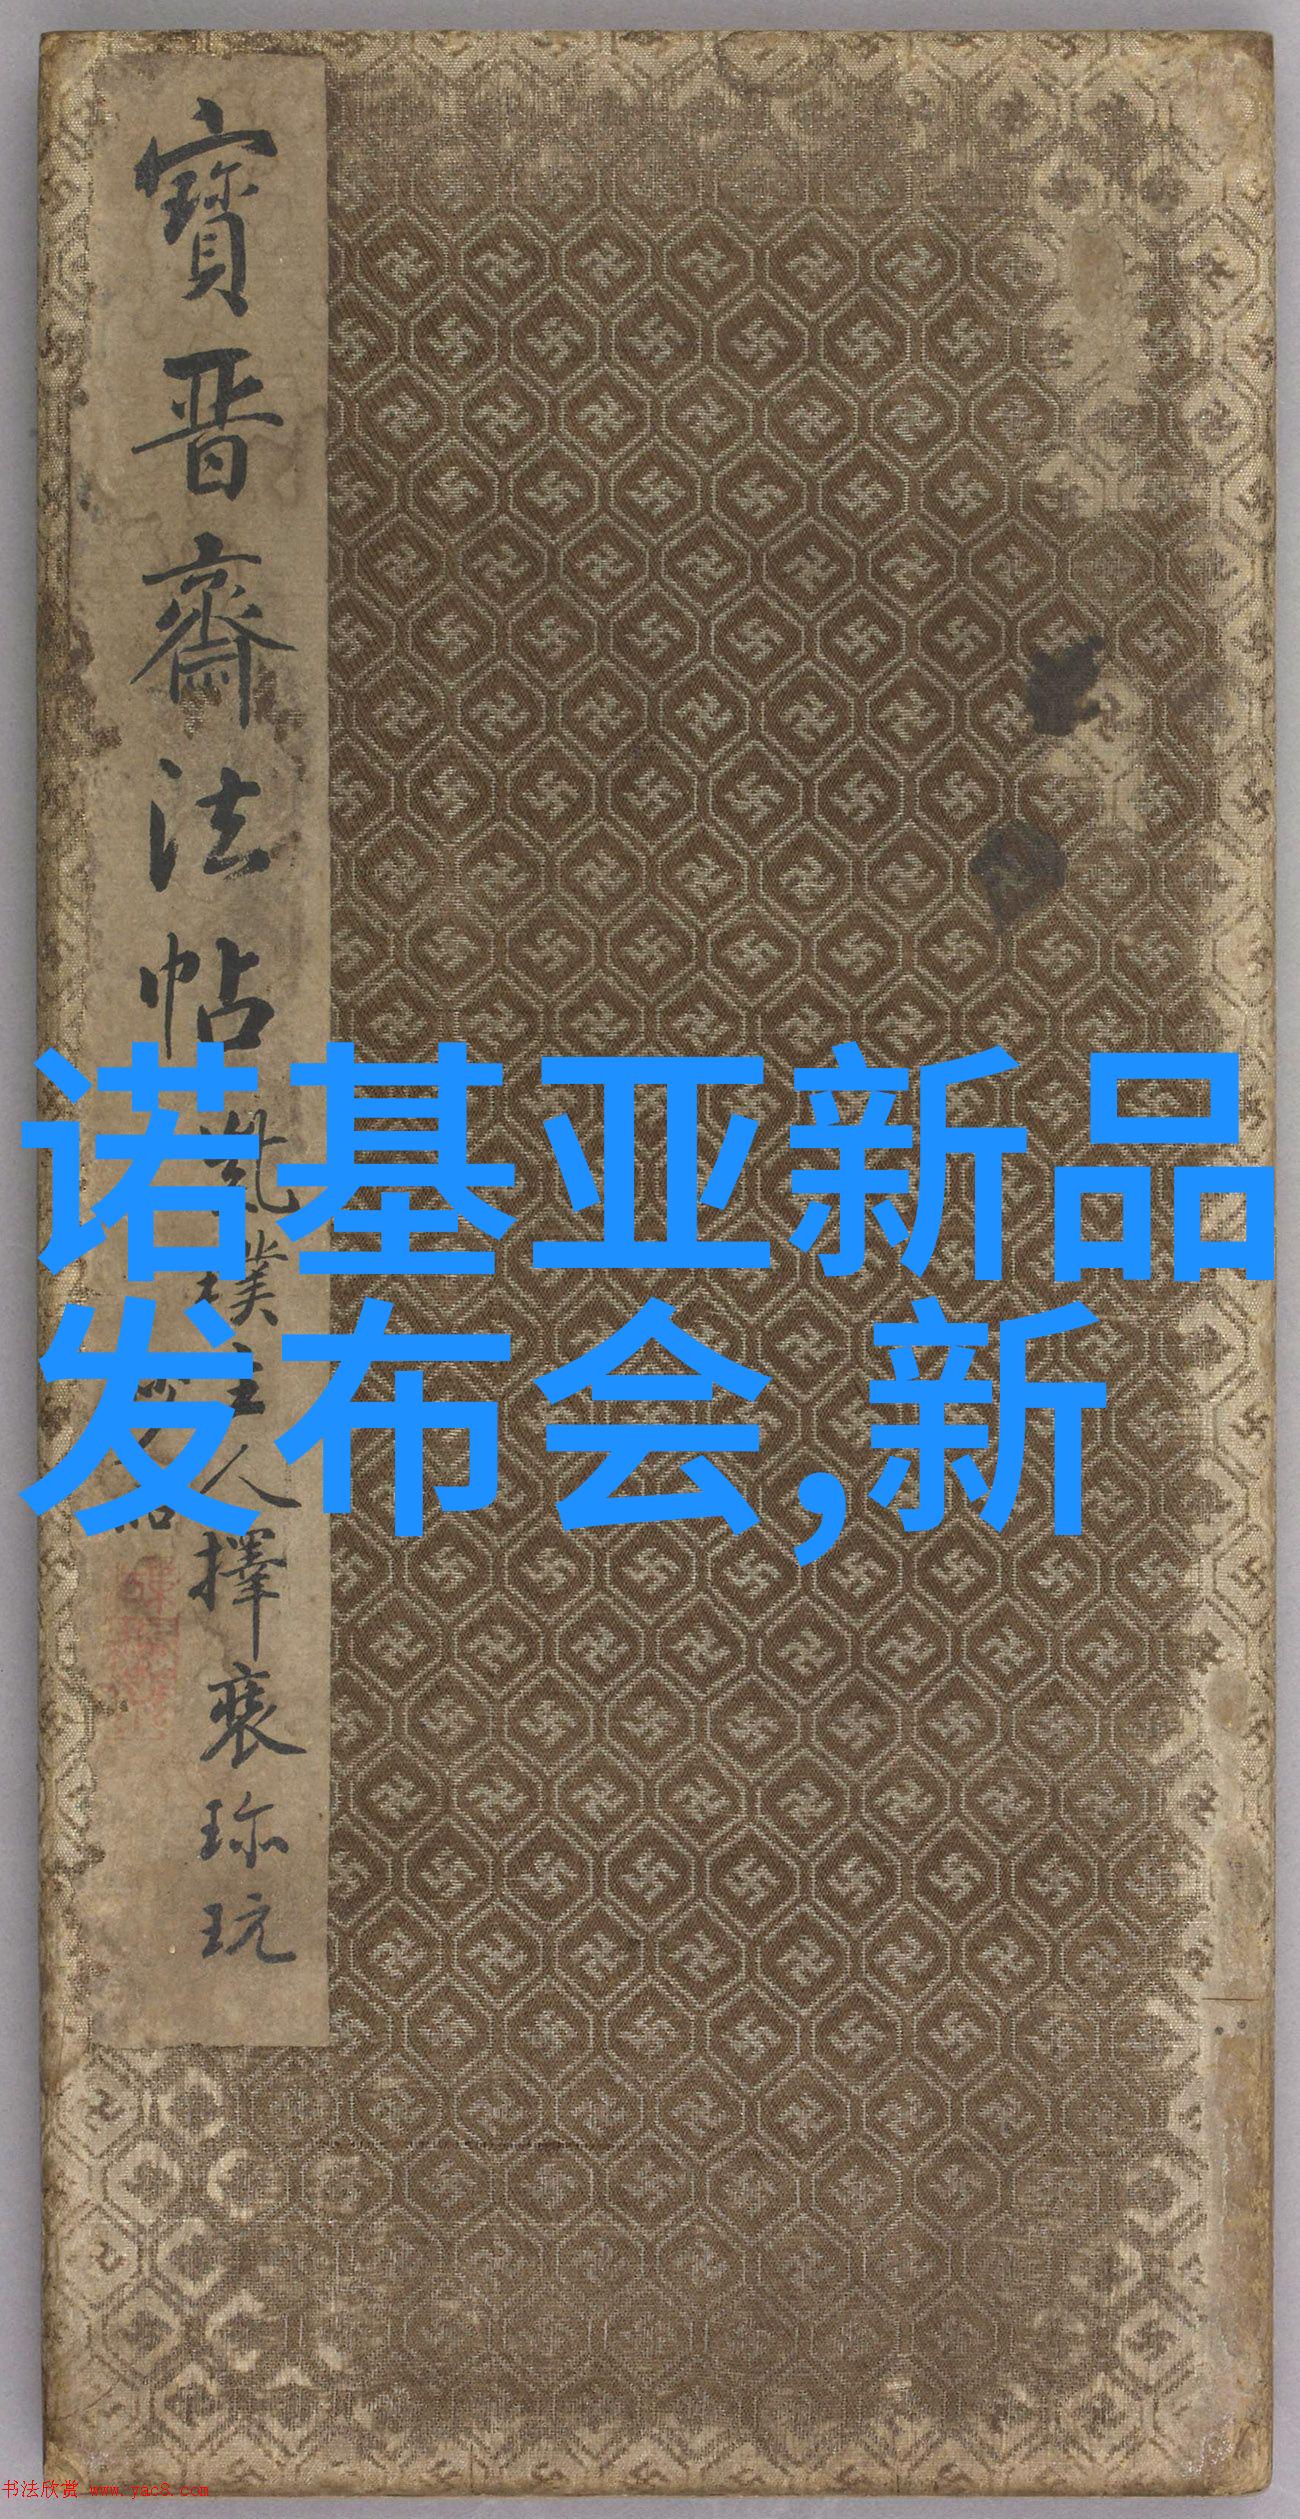 寶晉齋法帖
主人擇裘珎玩
诺基亚新品
发布会,新
书法欣赏 www.yac8.com